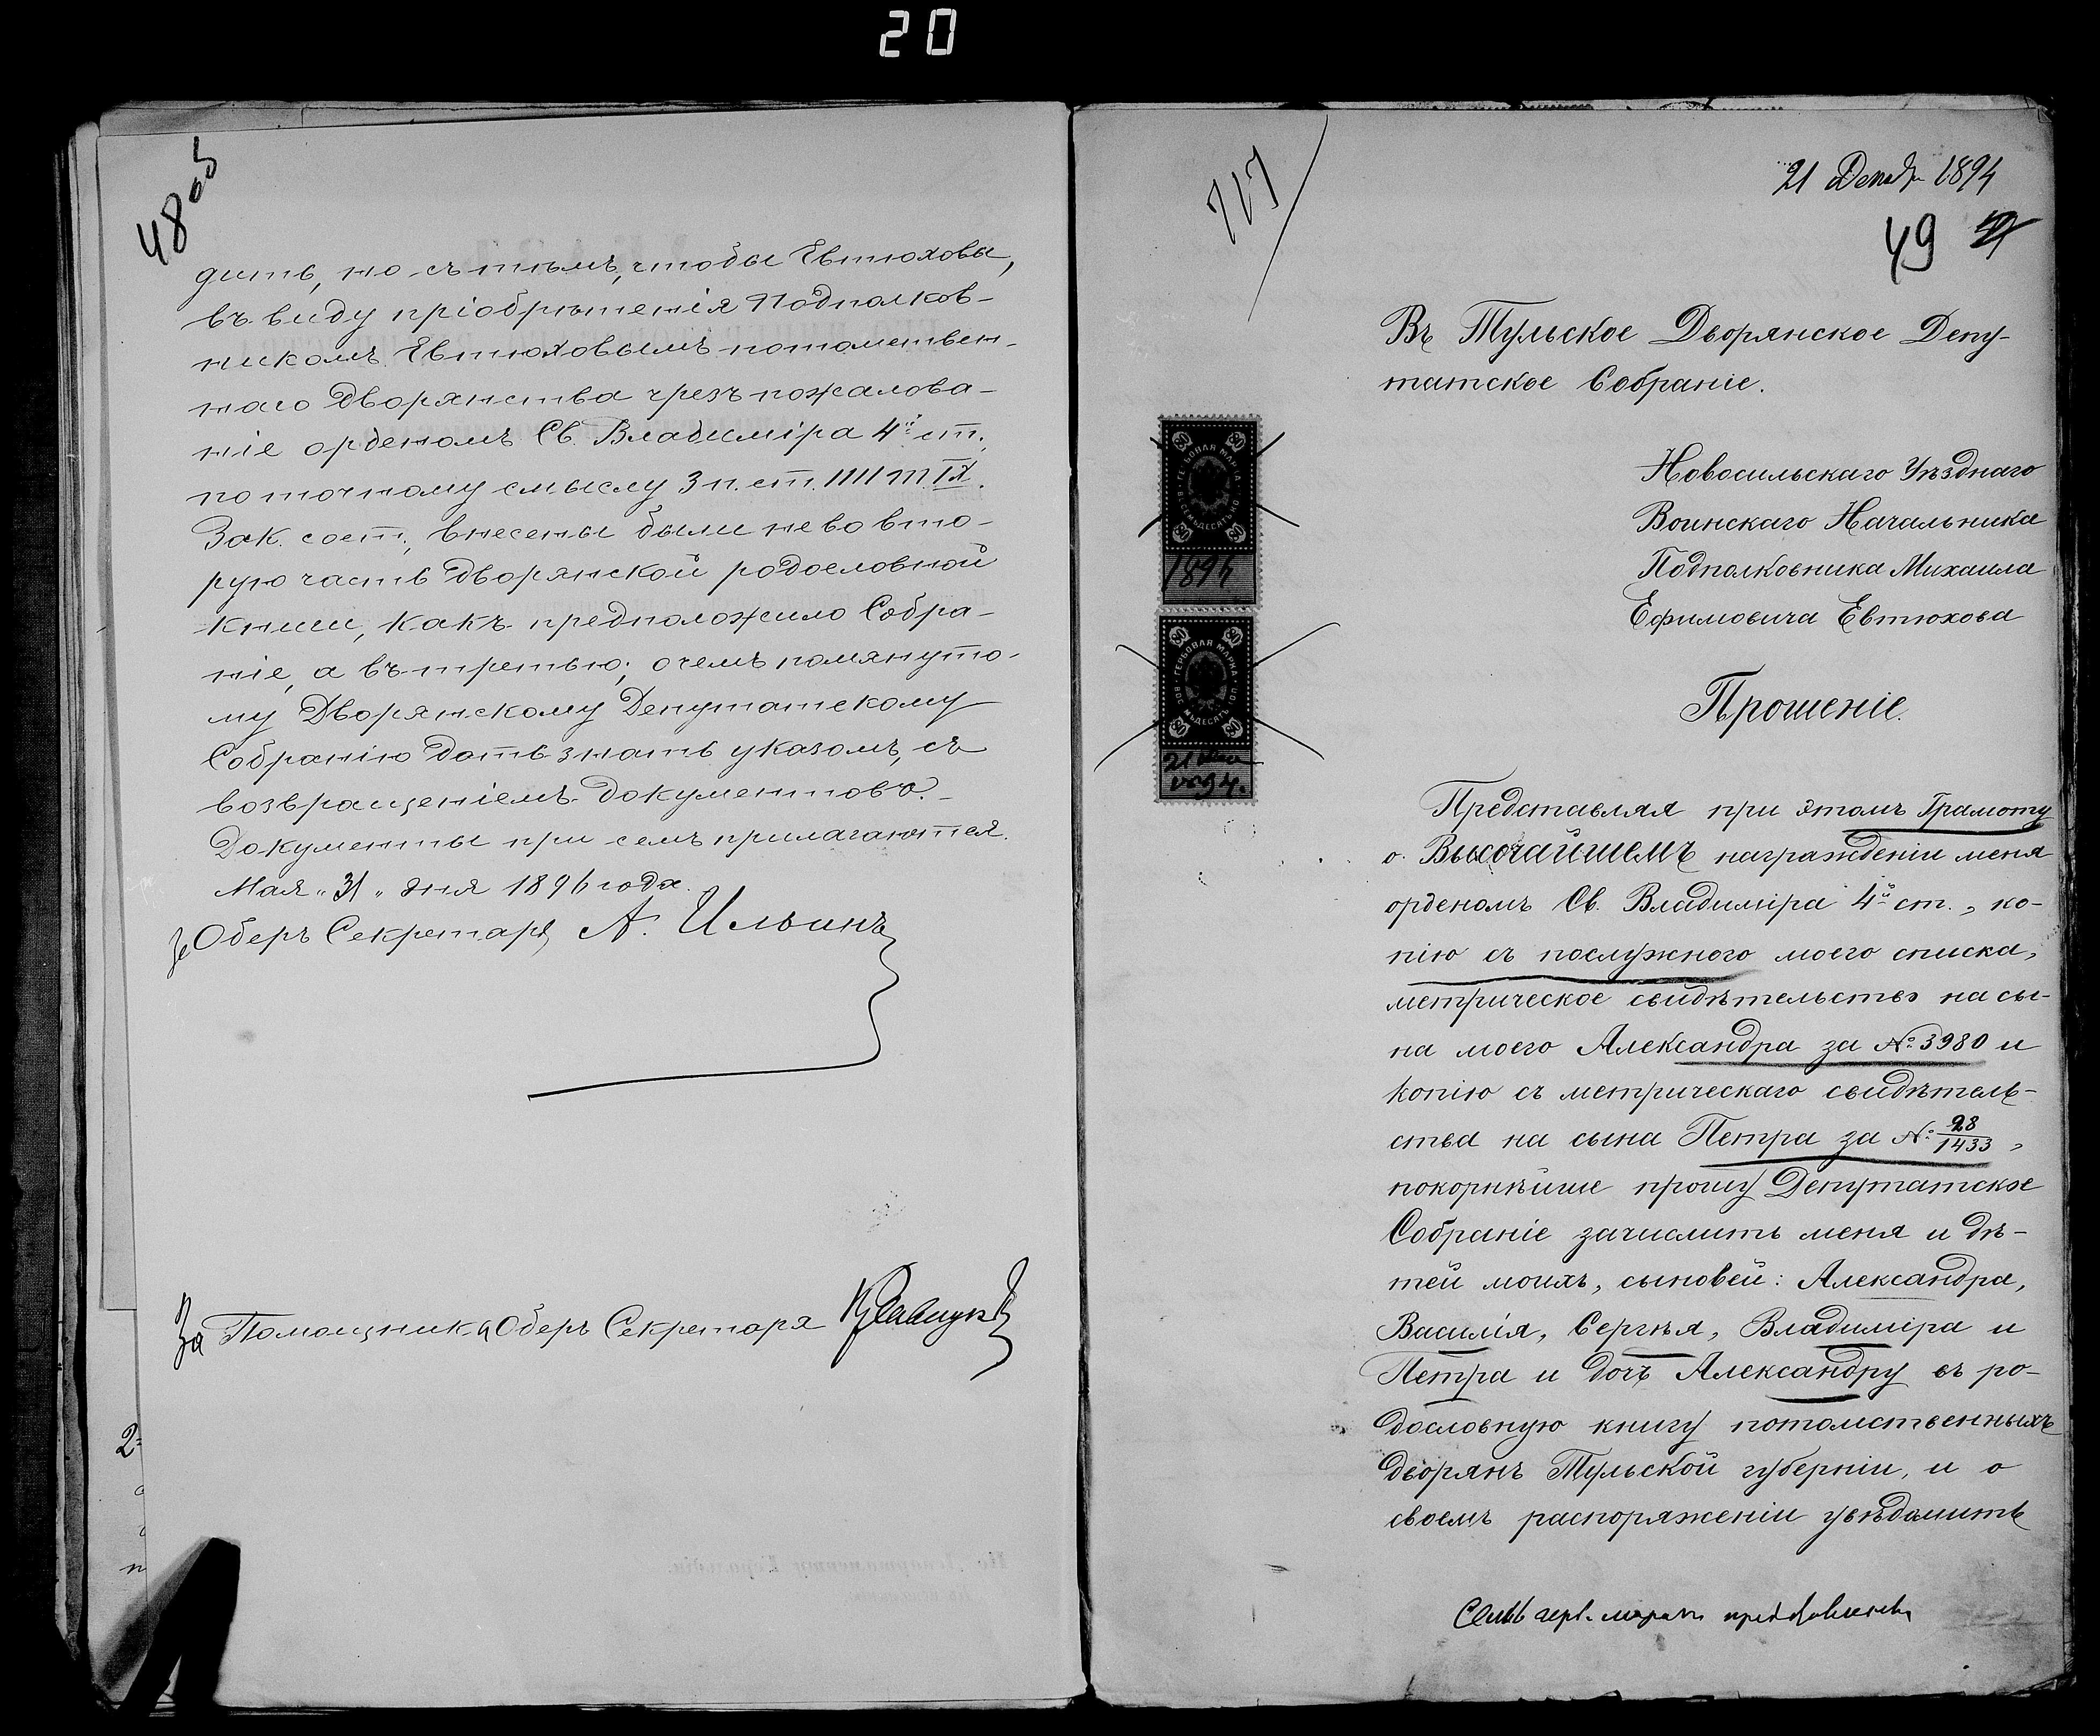 20
48 об
дить, но съ тѣмъ, чтобы Евтюховы,
въ виду пріобрѣтенія Подполков-
никомъ Евтюховымъ потомствен-
наго Дворянства чрезъ пожалова-
ніе орденомъ Св. Владиміра 4й ст.,
по точному смыслу 3 п. ст. 1111 т. IX.
Зак. сост., внесены были не во вто-
рую часть дворянской родословной
книги, какъ предположило Собра-
ніе, а въ третью; о чемъ помянуто-
му Дворянскому Депутатскому
Собранію дать знать указомъ, съ
возвращеніемъ документовъ.-
Документы при семъ прилагаются.
Мая "31" дня 1896 года.
За Оберъ Секретаря А. Ильинъ
За Помощника Оберъ Секретаря
717
21 Декабр 1894
49
Въ Тульское Дворянское Депу-
татское Собраніе.
Новосильскаго Уѣзднаго
Воинскаго Начальника
Подполковника Михаила
Ефимовича Евтюхова
Прошеніе.
ГЕРБОВАЯ МАРКА
ВОСЕМЬДЕСЯТЪ КОП.
80 80
80 80
1894
ГЕРБОВАЯ МАРКА
ВОСЕМЬДЕСЯТЪ КОП.
80 80
80 80
21
Представляя при этомъ Грамоту
о Высочайшемъ награжденіи меня
орденомъ Св. Владиміра 4й ст., ко-
пію съ послужного моего списка,
метрическое свидѣтельство на сы-
на моего Александра за № 3980 и
копію съ метрическаго свидѣтель-
ства на сына Петра за № 28/1433,
покорнѣйше прошу Депутатское
Собраніе зачислить меня и дѣ-
тей моихъ, сыновей: Александра,
Василія, Сергѣя, Владиміра и
Петра и дочь Александру въ ро-
дословную книгу потомственныхъ
дворянъ Тульской губерніи, и о
своемъ распоряженіи увѣдомить
герб. марки представлены